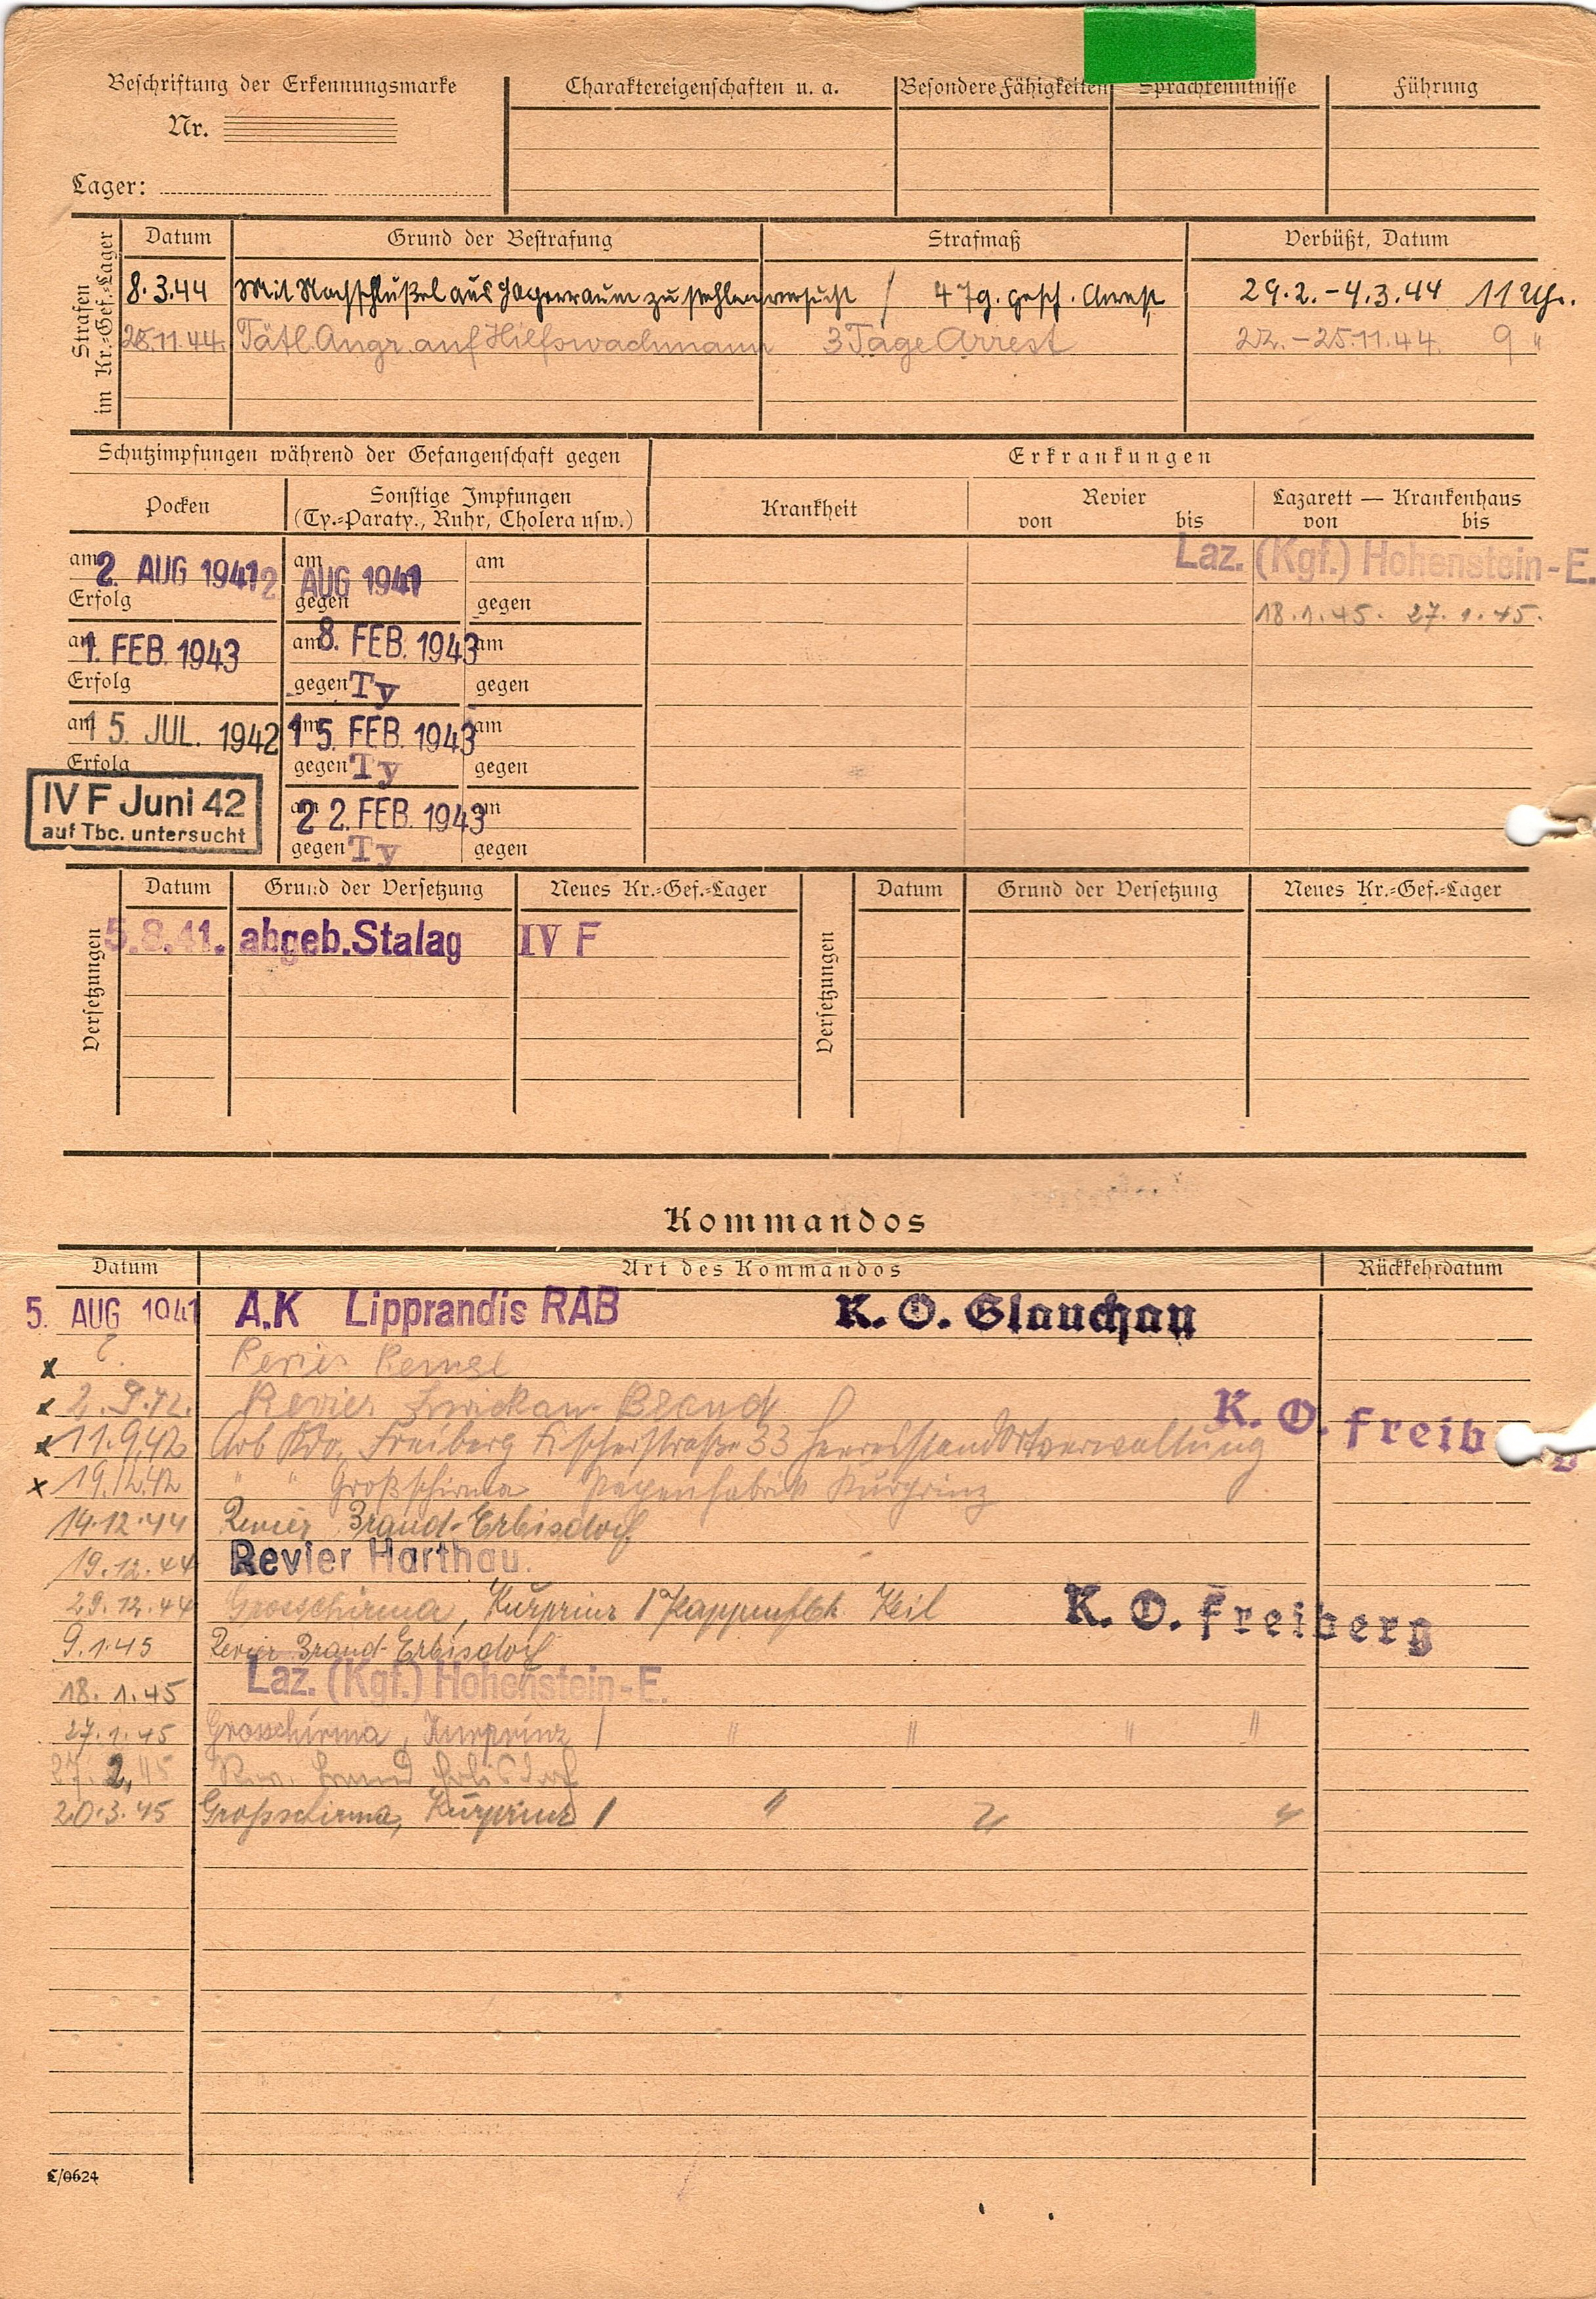 Beschriftung der Erkennungsmarke
Nr.
Lager:
Charaktereigenschaften u. a.
Besondere Fähigkeiten
Sprachkenntnisse
Führung
Strafen
im Kr.-Gef.-Lager
Datum Grund der Bestrafung Strafmaß Verbüßt, Datum
8.3.44 Mit Nachschlüßel aus Lagerraum zu stehlen versucht / 4 Tg. gesch. Arrest 29.2.-4.3.44 11 Uhr.
25.11.44. Tätl. Angr. auf Hilfswachmann 3 Tage Arrest 22.-25.11.44. 9 "
Schutzimpfungen während der Gefangenschaft gegen
Erkrankungen
Pocken
Sonstige Impfungen
(Ty.-Paraty., Ruhr, Cholera usw.)
Krankheit
Revier
von bis
Lazarett — Krankenhaus
von bis
Laz. (Kgf.) Hohenstein-E.
18.1.45. 27.1.45.
am 2. AUG 1941 am 2 AUG 1941 am
Erfolg gegen gegen
am 1. FEB. 1943 am 8. FEB. 1943 am
Erfolg gegen Ty gegen
am 15. JUL. 1942 am 15. FEB. 1943 am
Erfolg gegen Ty gegen
IV F Juni 42
auf Tbc. untersucht
am 22. FEB. 1943 am
gegen Ty gegen
Versetzungen
Datum Grund der Versetzung Neues Kr.-Gef.-Lager
5.8.41. abgeb. Stalag IV F
Versetzungen
Datum Grund der Versetzung Neues Kr.-Gef.-Lager
Kommandos
Datum Art des Kommandos Rückkehrdatum
5. AUG 1941 A.K Lipprandis RAB K. O. Glauchau
x Revier Remse
x 2.9.42. Revier Zwickau-Brand K. O. Freib
x 11.9.42 Arb Kdo. Freiberg Fischerstraße 33 Heeresstandortverwaltung
x 19.12.42 " " Großschirma Pappenfabrik Kurprinz
14.12.44 Revier Brand-Erbisdorf
19.12.44 Revier Harthau.
29.12.44 Grosschirma, Kurprinz / Pappenfbk. Keil K. O. Freiberg
9.1.45 Revier Brand-Erbisdorf
18.1.45 Laz. (Kgf.) Hohenstein-E.
27.1.45 Grosschirma, Kurprinz / " " " "
27.2.45 Rev. Brand Erbisdorf
20.3.45 Großschirma, Kurprinz / " " "
C/0624